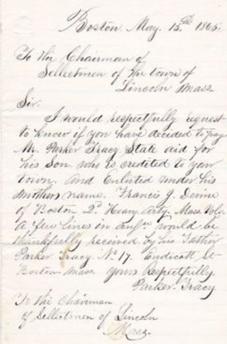 Boston, May, 15th 1865.
To the Chairman of
Sellectmen of the town of
Lincoln Mass
Sir.
I would respectfully request
to know if you have decided to pay
Mr. Parker Tracy State aid for
his Son who is credited to your
town. and Enlisted under his
Mothers name. Francis J. Devine
of Boston 2d Heavy Arty. Mass Vols
A few lines in would be
thankfully received by his Father
Parker Tracy No 17. Endicott St
Boston Mass yours Respectfully
Parker. Tracy
To the Chairman
of Sellectmen of Lincoln
Mass.